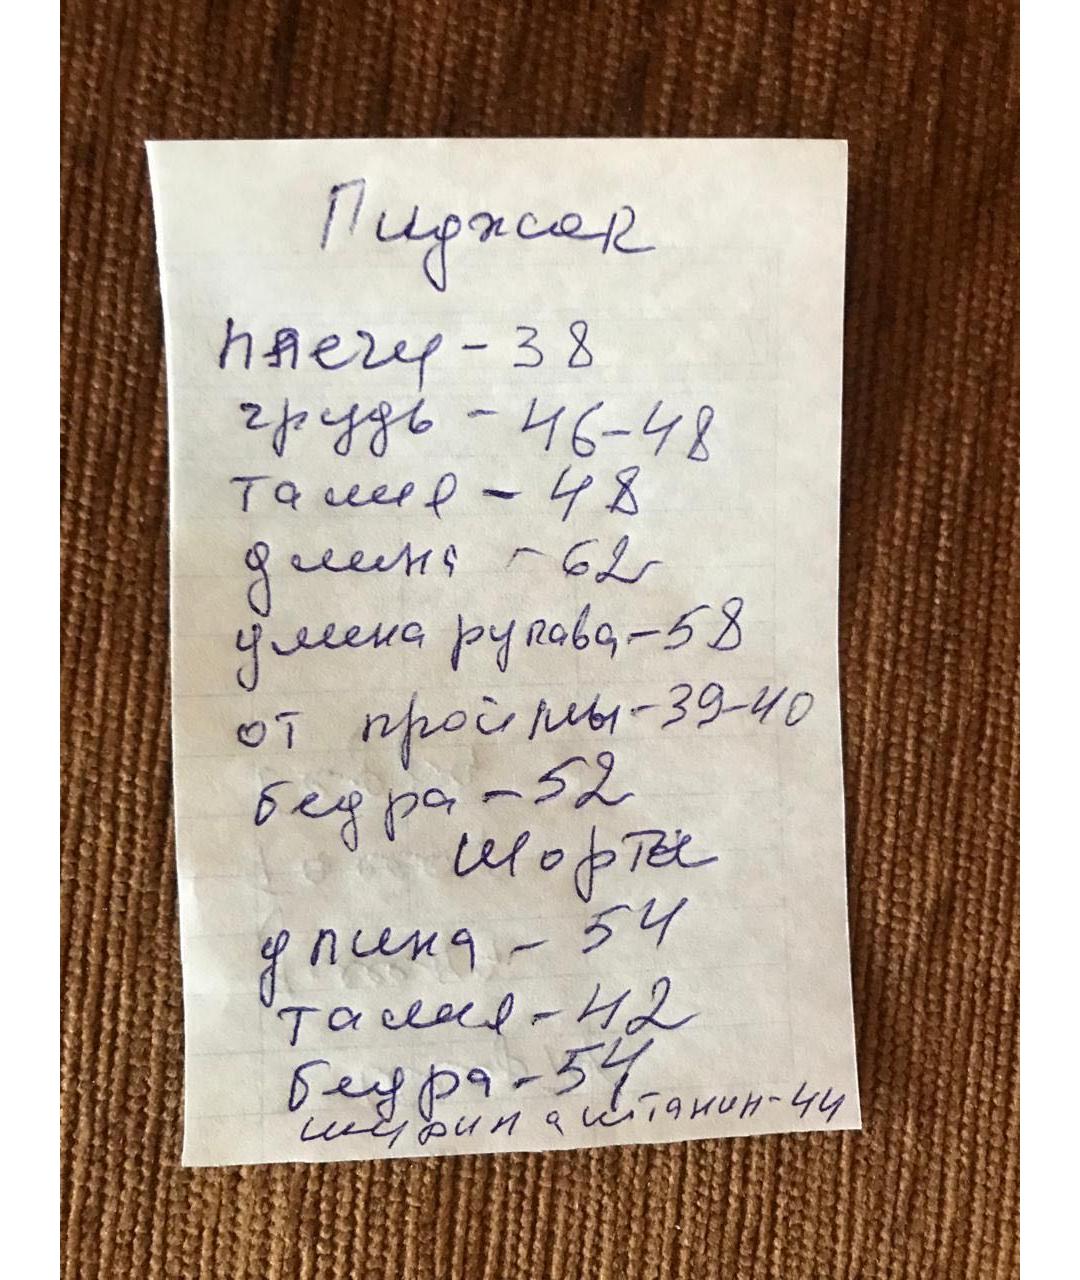 Пиджак
плечи - 38
грудь - 46-48
талия - 48
длина - 62
длина рукава - 58
от проймы - 39-40
бедра - 52
Шорты
длина - 54
талия - 42
бедра - 54
ширина штанин - 44